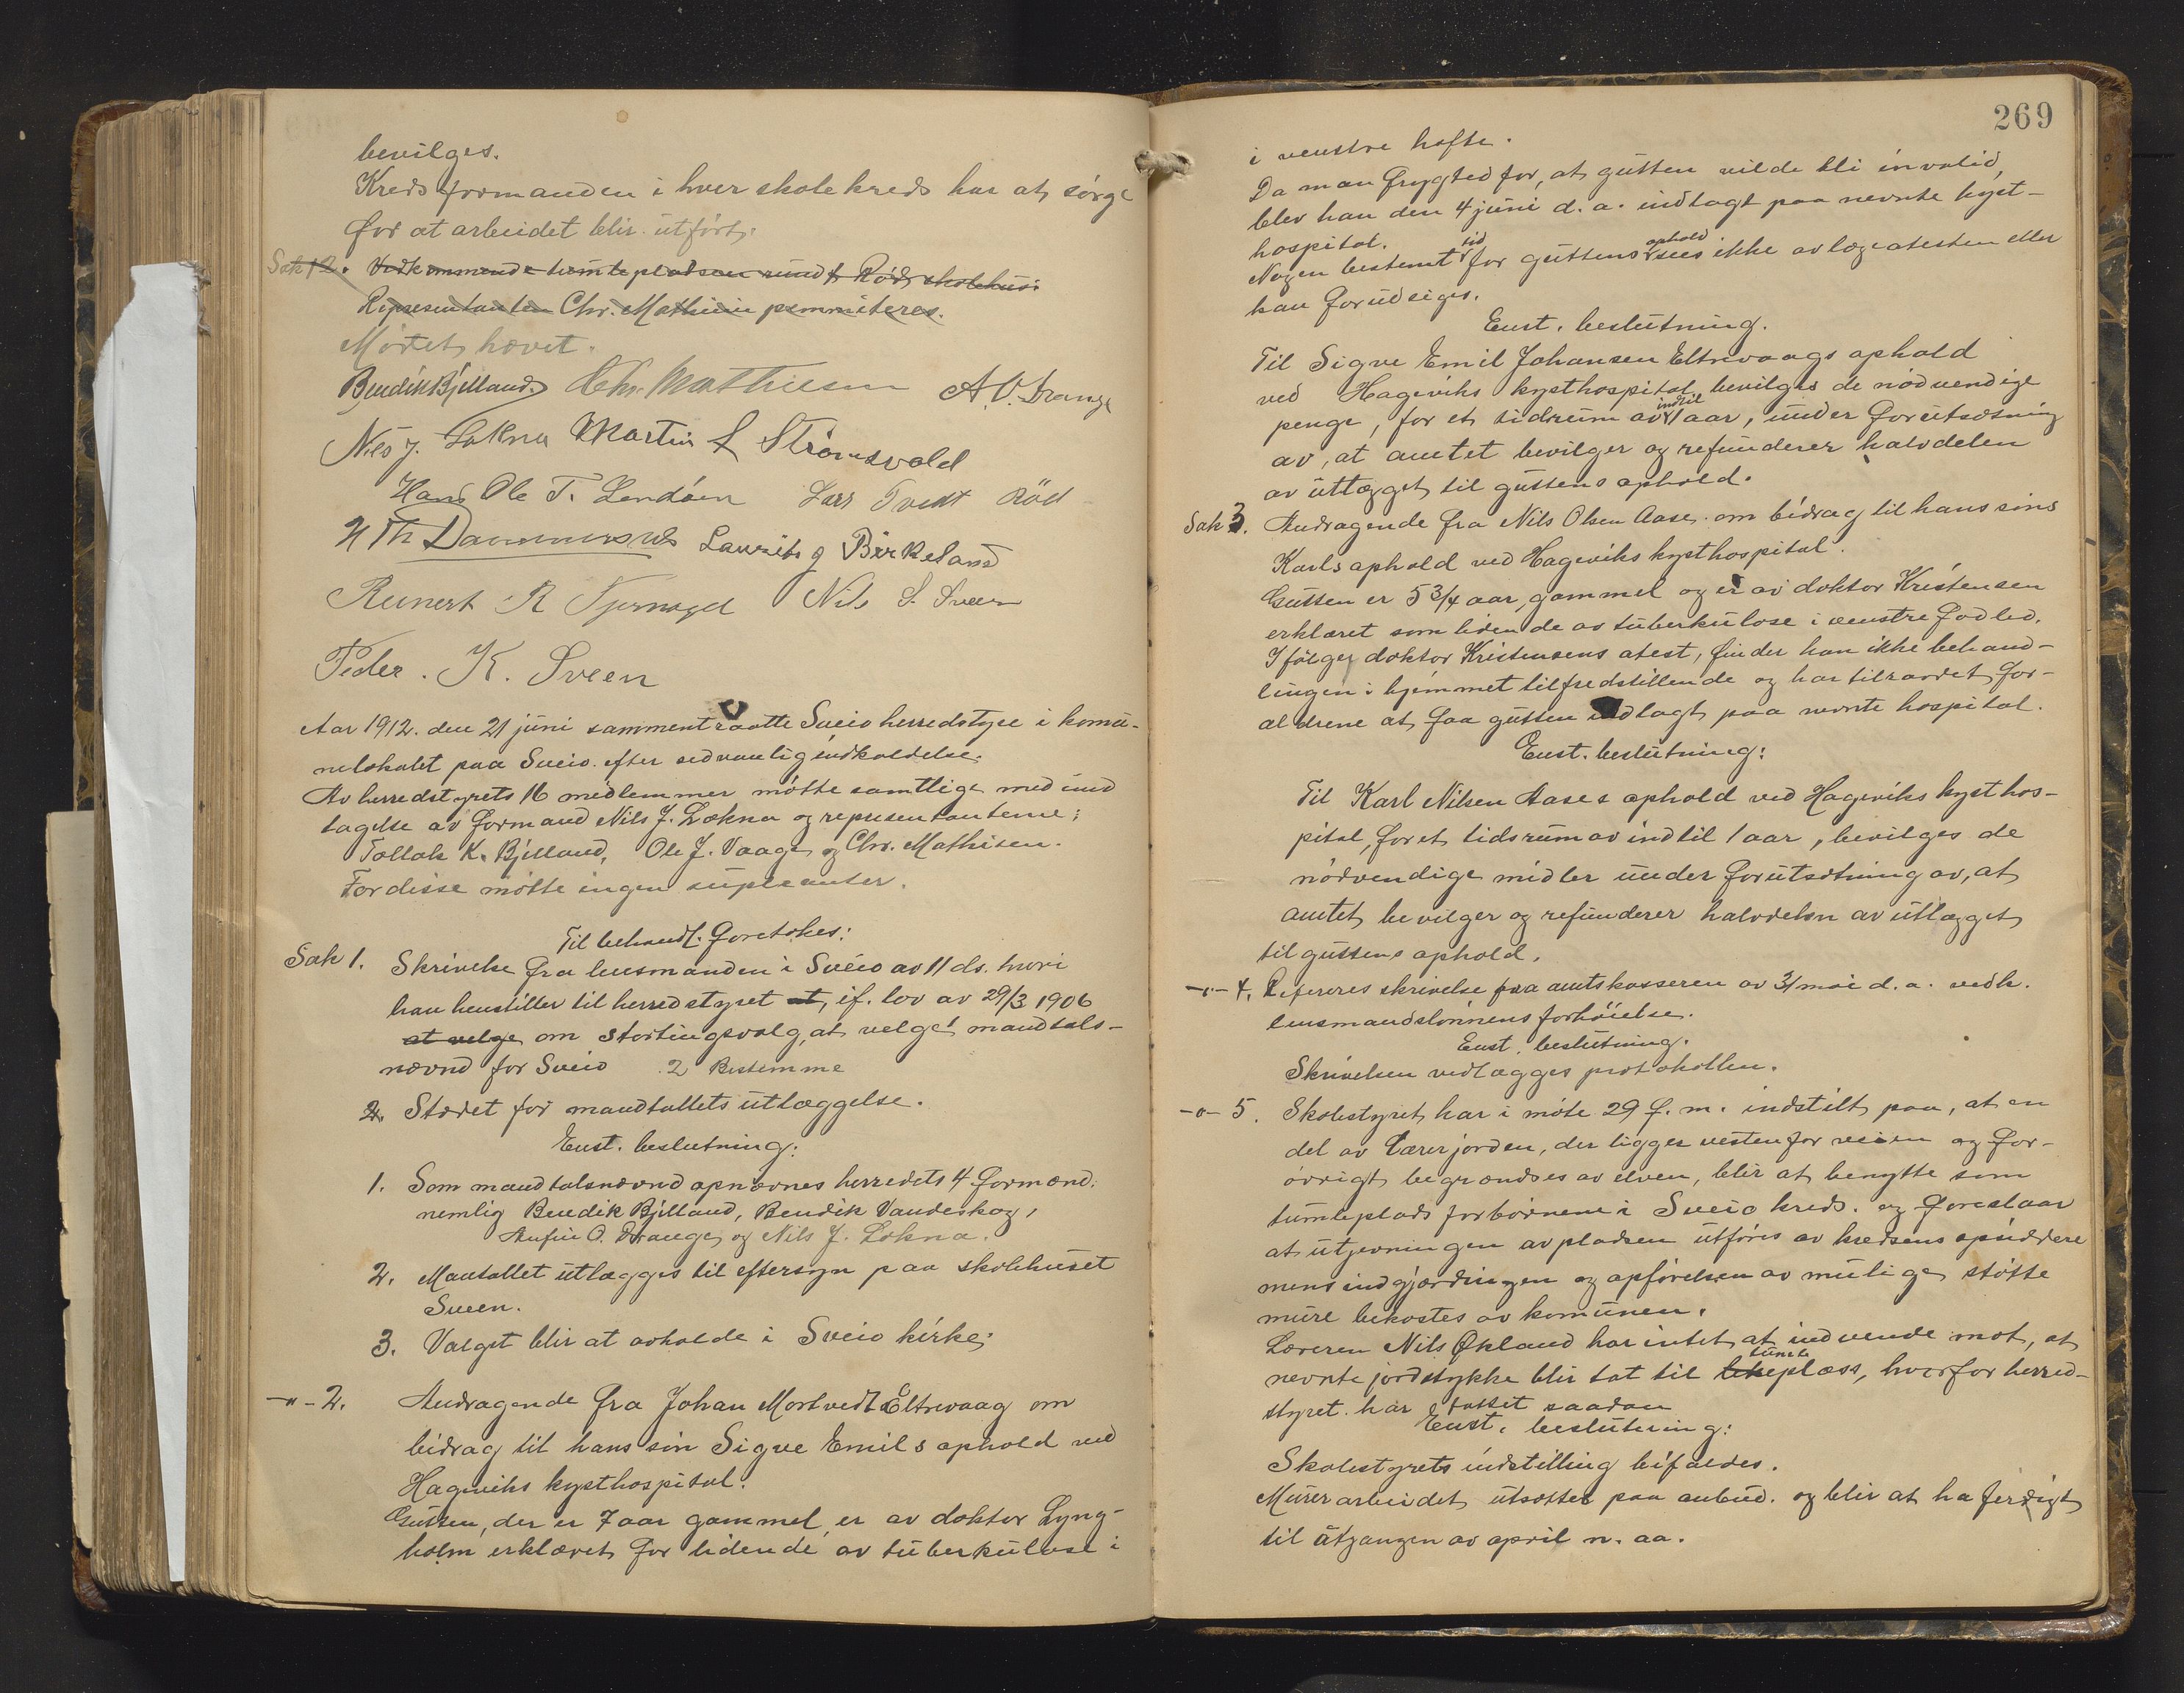 bevilges.
Kredsformanden i hver skolekreds har at sørge
for at arbeidet blir utført.
Sak 12. Vedkommende tumlepladsen rundt Røds skolehus:
Representanten Chr. Mathisen permiteres.
Møtet hævet.
Bendik Bjelland. Chr. Mathiesen A. O. Drange
Nils J. Løkna Martin L Strømsvold
Hans Ole T. Lendøen Lars Tveit Röd
Th Dammen Laurits J Birkeland
Reinert R Tjernagel Nils S. Sveen
Peder. K. Sveen
Aar 1912. den 21 juni sammentraatte Sveio herredstyre i komu-
nelokalet paa Sveio efter sedvanlig indkaldelse.
Av herredstyrets 16 medlemmer møtte samtlige med und
tagelse av formand Nils J. Løkna og representanterne;
Tollak K. Bjelland, Ole J. Vaage og Chr. Mathisen.
For disse møtte ingen supleanter.
Til behandl. foretokes:
Sak 1. Skrivelse fra lensmanden i Sveio av 11 ds. hvori
han henstiller til herredstyret at, if. lov av 29/3 1906
at velge om stortingsvalg, at velge 1 mandtals-
nævnd for Sveio 2 Bestemme
2. Stedet for mandtallets utlæggelse.
Enst. beslutning:
1. Som mandtalsnævnd opnævnes herredets 4 formænd.
nemlig Bendik Bjelland, Bendik Vandeskog,
Anfin O. Drange og Nils J. Løkna.
2. Mantallet utlægges til eftersyn paa skolehuset
Sveen.
3. Valget blir at avholde i Sveio kirke.
-"- 2. Andragende fra Johan Mortvedt Eltrevaag om
bidrag til hans søn Sigve Emils ophold ved
Hageviks kysthospital.
Gutten, der er 7 aar gammel, er av doktor Lyng-
holm erklæret for lidende av tuberkulose i
269
i venstre hofte.
Da man frygted for, at gutten vilde bli invalid,
blev han den 4 juni d. a. indlagt paa nevnte kyst-
hospital.
Nogen bestemt tid for guttens ophold sees ikke av lægeatesten eller
kan forudsiges.
Enst. beslutning.
Til Sigve Emil Johansen Eltrevaags ophold
ved Hageviks kysthospital bevilges de nødvendige
penge, for et tidsrum av indtil 1 aar, under forutsætning
av, at amtet bevilger og refunderer halvdelen
av utlægget til guttens ophold.
Sak 3. Andragende fra Nils Olsen Aase om bidrag til hans søns
Karls ophold ved Hageviks kysthospital.
Gutten er 5 3/4 aar gammel og er av doktor Kristensen
erklæret som lidende av tuberkulose i venstre fodled.
Ifølge doktor Kristensens atest, finder han ikke behand-
lingen i hjemmet tilfredstillende og har tilraadet for-
ældrene at faa gutten indlagt paa nevnte hospital.
Enst. beslutning:
Til Karl Nilsen Aases ophold ved Hageviks kysthos-
pital, for et tidsrum av indtil 1 aar, bevilges de
nødvendige midler under forutsætning av, at
amtet bevilger og refunderer halvdelen av utlægget
til guttens ophold.
-"- 4. Refereres skrivelse fra amtskasseren av 31 mai d. a. vedk.
lensmandslønnens forhøielse.
Enst. beslutning.
Skrivelsen vedlægges protokollen.
-"- 5. Skolestyret har i møte 29 f. m. indstilt paa, at en
del av Lærerjorden, der ligger vestenfor veien og for-
øvrigt begrændses av elven, blir at benytte som
tumleplads for børnene i Sveio kreds. og foreslaar
at utjevningen av pladsen utføres av kredsens opsiddere
mens indgjærdingen og opførelsen av mulige støtte
mure bekostes av komunen.
Læreren Nils Økland har intet at indvende mot, at
nevnte jordstykke blir tat til lekeplass, tumle hvorfor herred-
styret har fattet saadan
Enst. beslutning:
Skolestyrets indstilling bifaldes.
Murerarbeidet utsættes paa anbud. og blir at ha ferdigt
til utgangen av april n. aa.